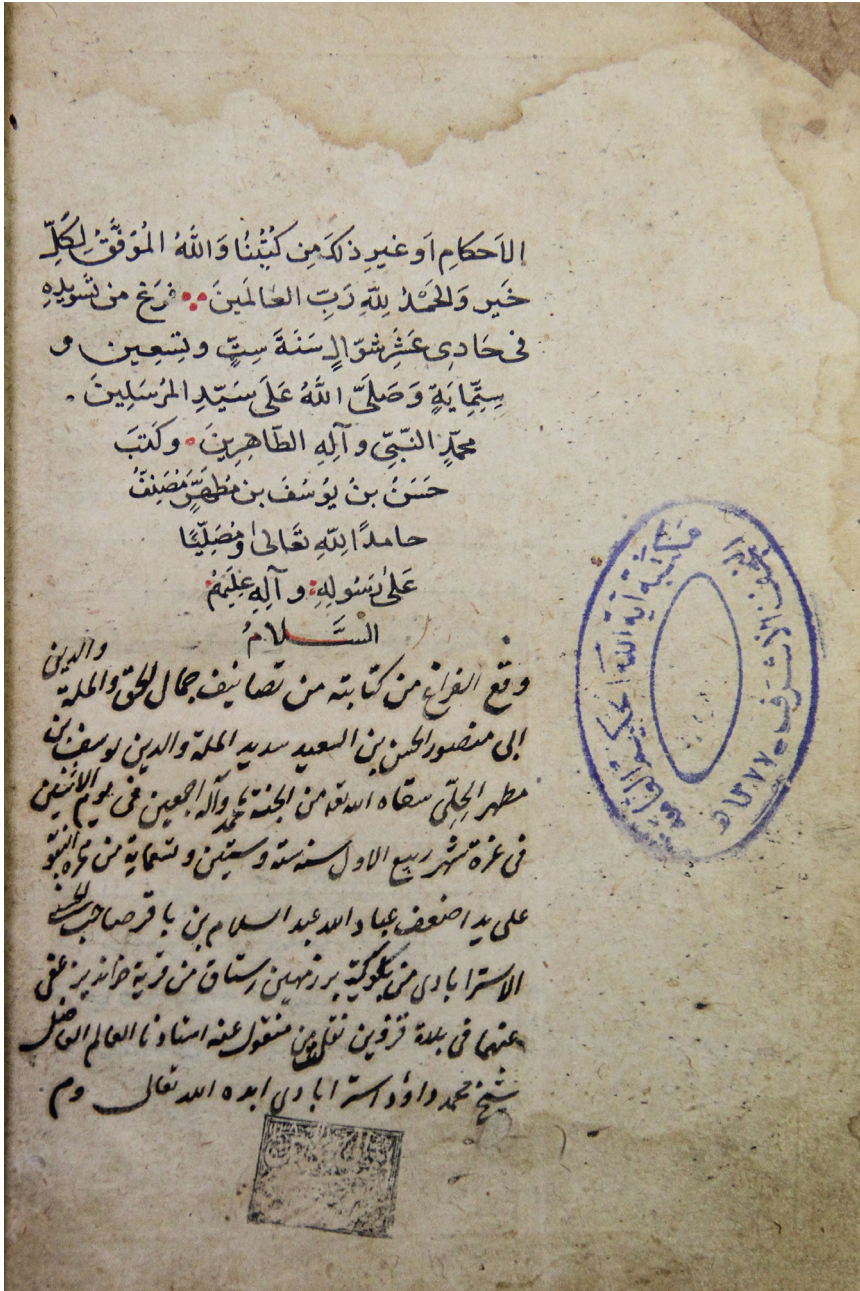 الاَحكامِ اَو غيرِ ذلكَ مِن كُتُبُنَا وَاللَّهُ المُوَفَّقُ لِكَلِّ
خَيرٍ وَالحَمْدُ لِلَّهِ رَبِّ العَالَمينَ فرَغ من تسويدِهِ
فى حَادِى عَشَر شوّالِ سَنَةَ سِتٍّ وتِسعِين و
سِتّمِايَةٍ وَصَلىَّ اللَّهُ عَلَى سَيّدِ المُرسَلِينَ
محمّدٍ النَّبّىِ وآلِهِ الطّاهِرِينَ وكَتبَ
حَسَنُ بنُ يُوسُفَ بن مُطَهَّرٍ مُصَنِفُ
حامدًا لِلّهِ تَعَالىٰ وَمُصَلِّيًا
عَلىٰ رَسُولِهِ وآلِهِ عَلَيهِمُ
السَّلامُ
وقع الفراغ من كتابته من تصانيف جمال الحق والملة والدين
ابى منصور الحسن بن السعيد سديد الملة والدين يوسف بن
مطهر الحِلّى سقاه الله من الجنة بمحمد وآله اجمعين فى يوم الاثنين
فى غرة شهر ربيع الاول سنه سته وستين وتسماية من هجره النبو
على يد اضعف عباد الله عبد السلام بن باقر صاحب
الاسترابادى من بلوكية برزمهين رستاق من قرية عفى
عنهما فى بلدة قزوين منقول عنه استادنا العالم الفاضل
شيخ محمد داؤد استرابادى ابده الله تعالى وم
مكتبة آية الله الحكيم العامة
النجف الاشرف ١٣٧٧ه